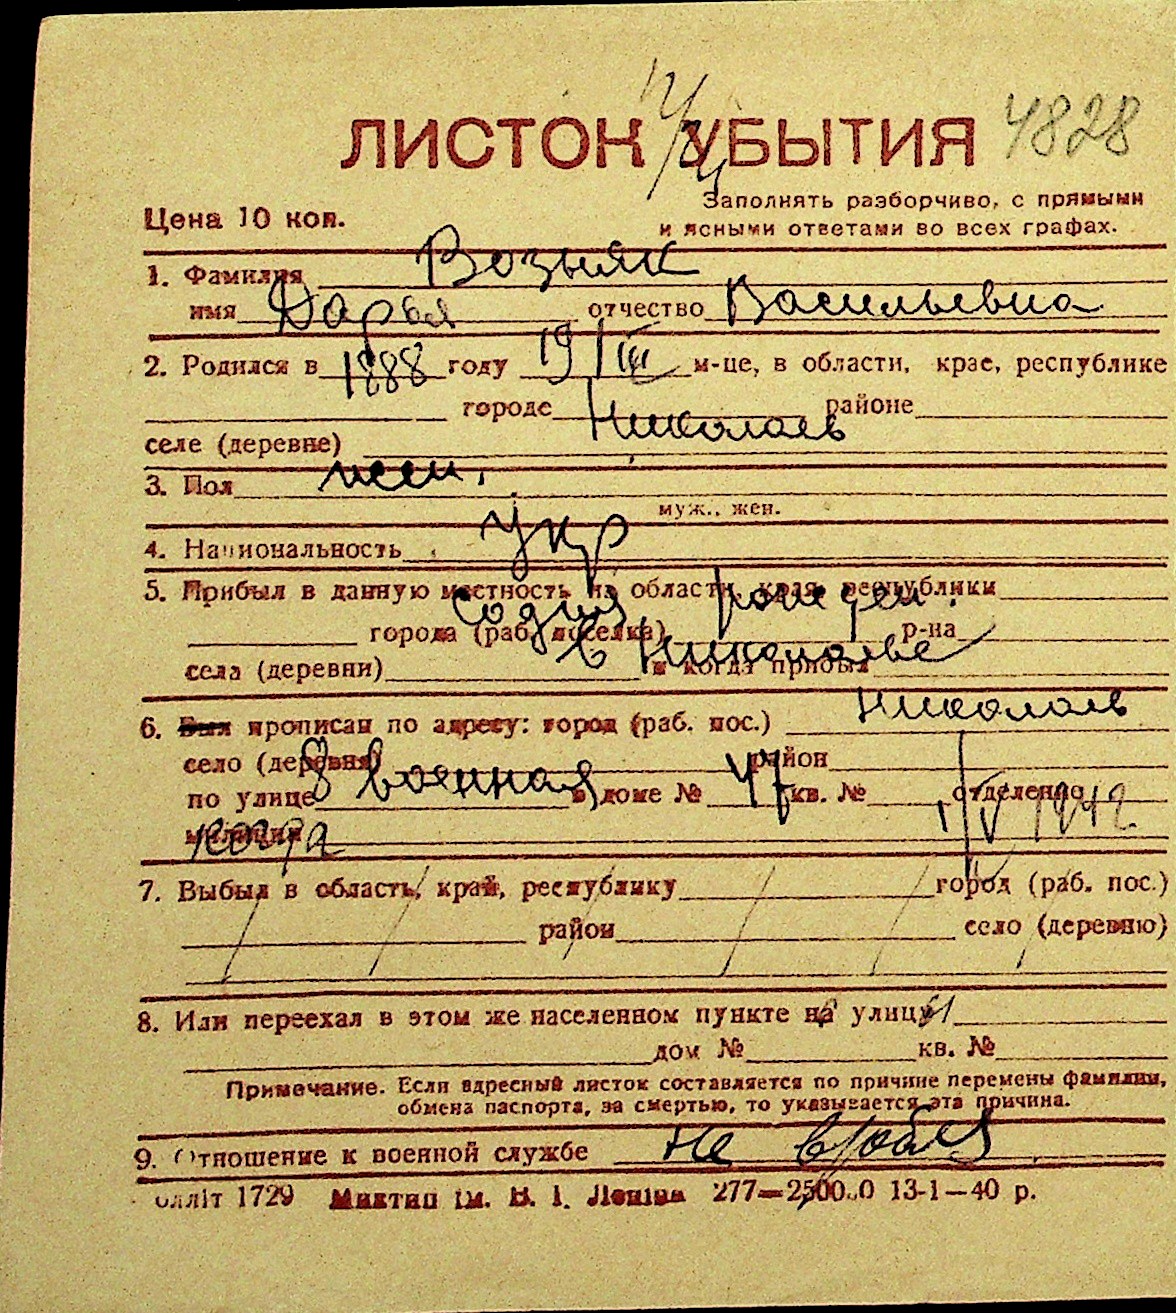 ЛИСТОК УБЫТИЯ 4828
Цена 10 коп.
Заполнять разборчиво, с прямыми
и ясными ответами во всех графах.
1. Фамилия Возняк
имя Дарья отчество Васильевна
2. Родился в 1888 году 19/III м-це, в области, крае, республике
городе Николаев районе
селе (деревне)
3. Пол жен.
муж., жен.
4. Национальность укр
5. Прибыл в данную местность из области, края, республики
города (раб. поселка) р-на
в Николаеве
села (деревни) и когда прибыл
6. Был прописан по адресу: город (раб. пос.) Николаев
село (деревня) район
по улице 8 военная в доме № 47 кв. № отделению
милиции 1/V 1942
7. Выбыл в область, край, республику город (раб. пос.)
район село (деревню)
8. Или переехал в этом же населенном пункте на улицу
дом № кв. №
Примечание. Если адресный листок составляется по причине перемены фамилии,
обмена паспорта, за смертью, то указывается эта причина.
9. Отношение к военной службе не в/обяз
Миктип ім. В. І. Леніна 13-1—40 р.